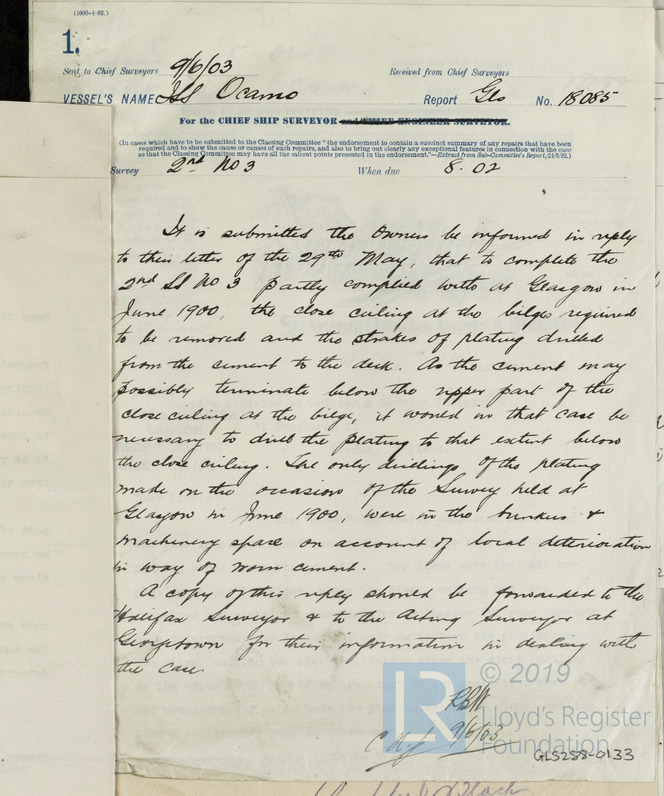 (1000-4-02.)
1.
Sent to Chief Surveyors 9/6/03 Received from Chief Surveyors
VESSEL'S NAME SS Ocamo Report Gls No. 18085
For the CHIEF SHIP SURVEYOR and CHIEF ENGINEER SURVEYOR.
(In cases which have to be submitted to the Classing Committee "the endorsement to contain a succinct summary of any repairs that have been
required and to show the cause or causes of such repairs, and also to bring out clearly any exceptional features in connection with the case
so that the Classing Committee may have all the salient points presented in the endorsement."—Extract from Sub-Committee's Report, 21/5/02.)
Survey 2nd No 3 When due 8.02
It is submitted the Owners be informed in reply
to their letter of the 29th May, that to complete the
2nd SS No 3 partly complied with at Glasgow in
June 1900, the close ceiling at the bilges required
to be removed and the strakes of plating drilled
from the cement to the deck. As the cement may
possibly terminate below the upper part of the
close ceiling at the bilge, it would in that case be
necessary to drill the plating to that extent below
the close ceiling. The only drillings of the plating
made on the occasion of the Survey held at
Glasgow in June 1900, were in the bunkers &
machinery space on account of local deterioration
in way of worn cement.
A copy of this reply should be forwarded to the
Halifax Surveyor & to the Acting Surveyor at
Georgetown for their information in dealing with
the case.
9/6/03
LR © 2019
Lloyd's Register
Foundation
GLS258-0133